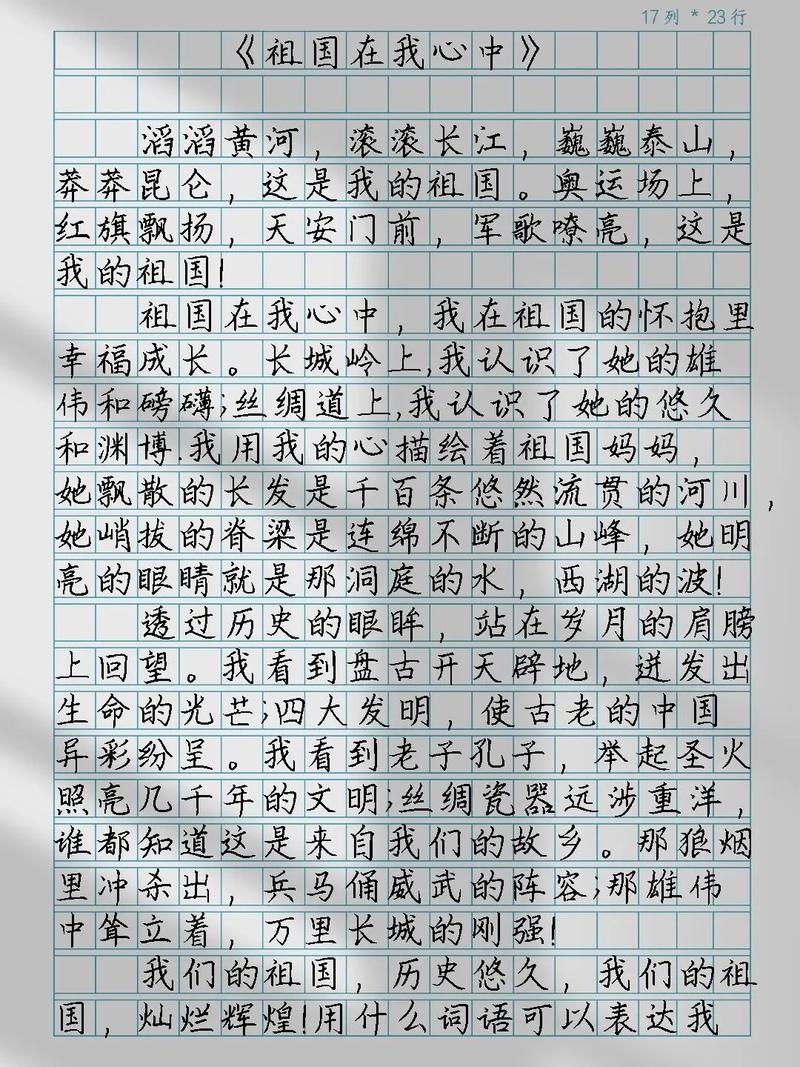 17列 * 23行
《祖国在我心中》
滔滔黄河，滚滚长江，巍巍泰山，
莽莽昆仑，这是我的祖国。奥运场上，
红旗飘扬，天安门前，军歌嘹亮，这是
我的祖国！
祖国在我心中，我在祖国的怀抱里
幸福成长。长城岭上,我认识了她的雄
伟和磅礴;丝绸道上,我认识了她的悠久
和渊博.我用我的心描绘着祖国妈妈，
她飘散的长发是千百条悠然流贯的河川，
她峭拔的脊梁是连绵不断的山峰，她明
亮的眼睛就是那洞庭的水，西湖的波!
透过历史的眼眸，站在岁月的肩膀
上回望。我看到盘古开天辟地，迸发出
生命的光芒;四大发明，使古老的中国
异彩纷呈。我看到老子孔子，举起圣火
照亮几千年的文明;丝绸瓷器远涉重洋，
谁都知道这是来自我们的故乡。那狼烟
里冲杀出，兵马俑威武的阵容;那雄伟
中耸立着，万里长城的刚强!
我们的祖国，历史悠久，我们的祖
国，灿烂辉煌!用什么词语可以表达我